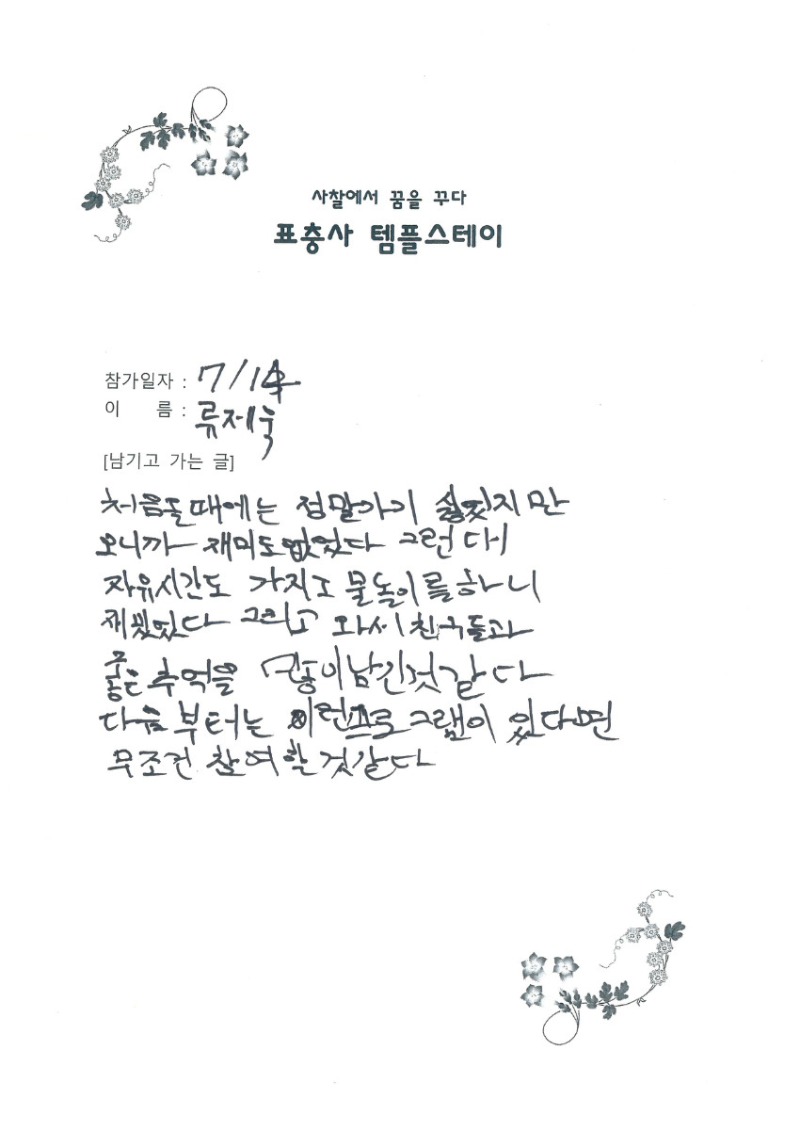 사찰에서 꿈을 꾸다
표충사 템플스테이
참가일자 : 7/14
이 름 : 류제욱
[남기고 가는 글]
처음올때에는 정말가기 싫었지만
오니까 재미도없었다 그런대
자유시간도 가지고 물놀이를하니
재밌었다 그리고 와서 친구들과
좋은추억을 많이남긴것같다
다음부터는 이런프로그램이 있다면
무조건 참여할것같다